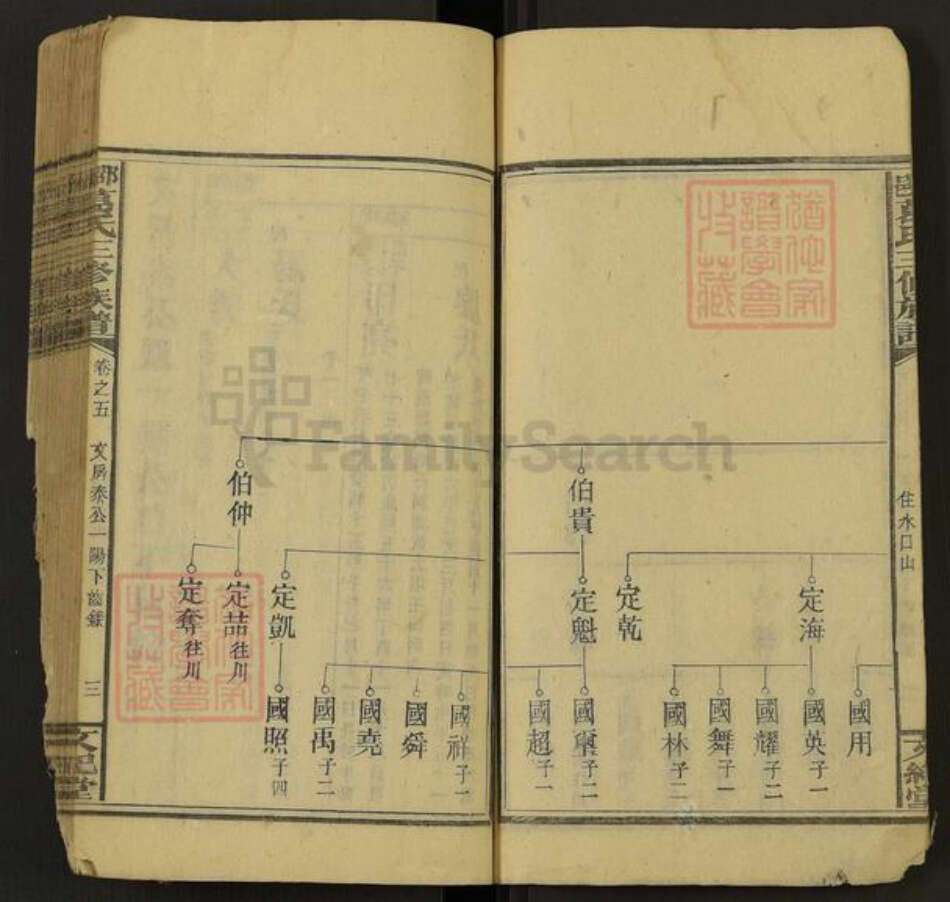 葛氏三修族譜
住水口山
文紀堂
猶他家譜學會收藏
伯貴
伯仲
定海
定乾
定魁
定凱
定喆 往川
定奪 往川
國用
國英 子一
國耀 子二
國舞 子一
國林 子二
國 子二
國超 子一
國祥 子一
國舜
國堯
國禹 子二
國照 子四
FamilySearch
葛氏三修族譜
卷之五
文房泰公一陽下齒錄
三
文紀堂
猶他家譜學會收藏